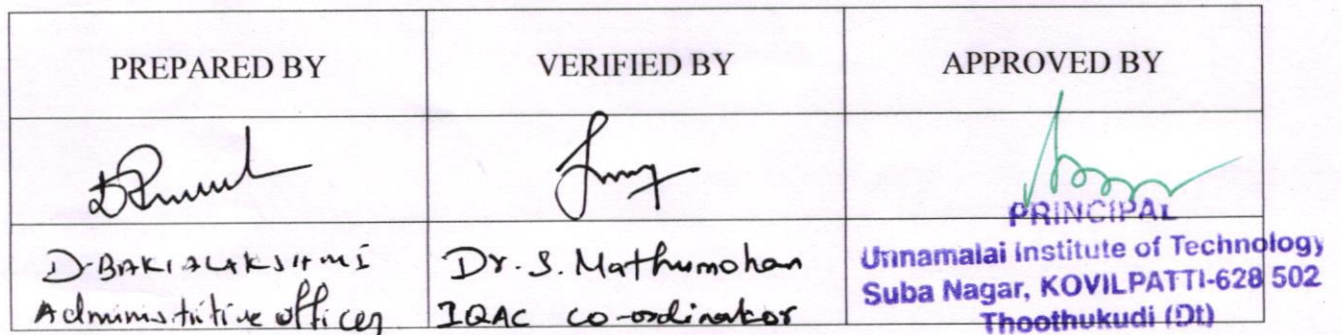 PREPARED BY
VERIFIED BY
APPROVED BY
PRINCIPAL
D. BAKIALAKSHMI
Administrative officer
Dr. S. Mathumohan
IQAC co-ordinator
Unnamalai Institute of Technology
Suba Nagar, KOVILPATTI-628 502
Thoothukudi (Dt)